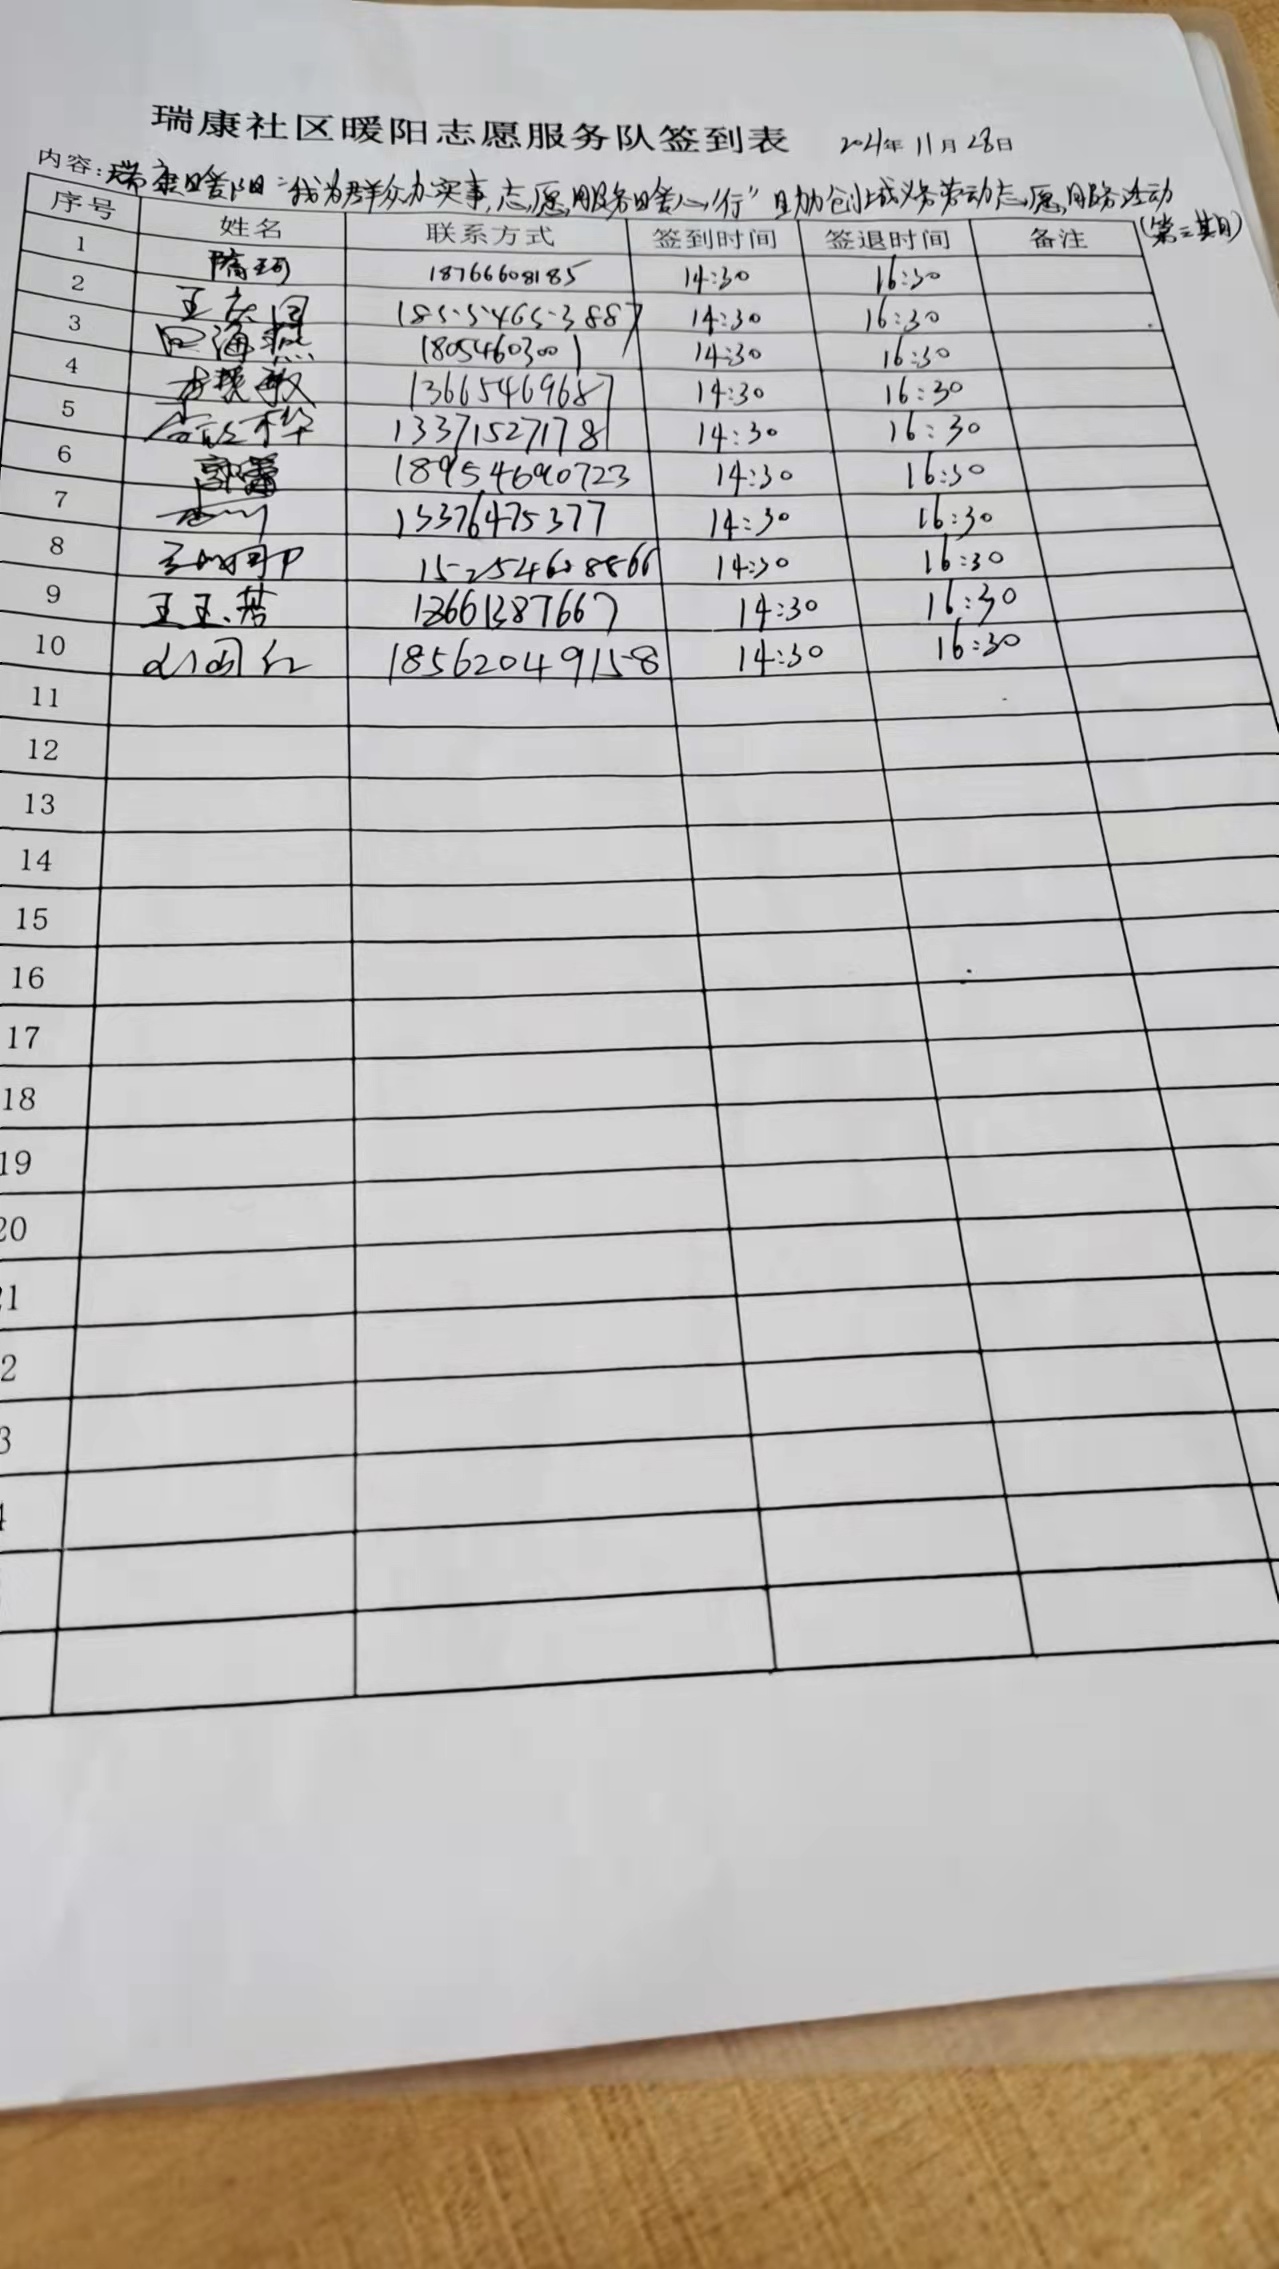 瑞康社区暖阳志愿服务队签到表 2021年11月28日
内容:瑞康暖阳“我为群众办实事,志愿服务暖心行”且助力创城义务劳动志愿服务活动
(第三期)
序号 姓名 联系方式 签到时间 签退时间 备注
1 隋珂 18766608185 14:30 16:30
2 王志国 18554653887 14:30 16:30
3 海燕 18054603001 14:30 16:30
4 敏 13665469687 14:30 16:30
5 13371527178 14:30 16:30
6 郭蕾 18954690723 14:30 16:30
7 15376475377 14:30 16:30
8 15254608866 14:30 16:30
9 王玉芬 13661387667 14:30 16:30
10 18562049158 14:30 16:30
11
12
13
14
15
16
17
18
19
20
21
2
3
4